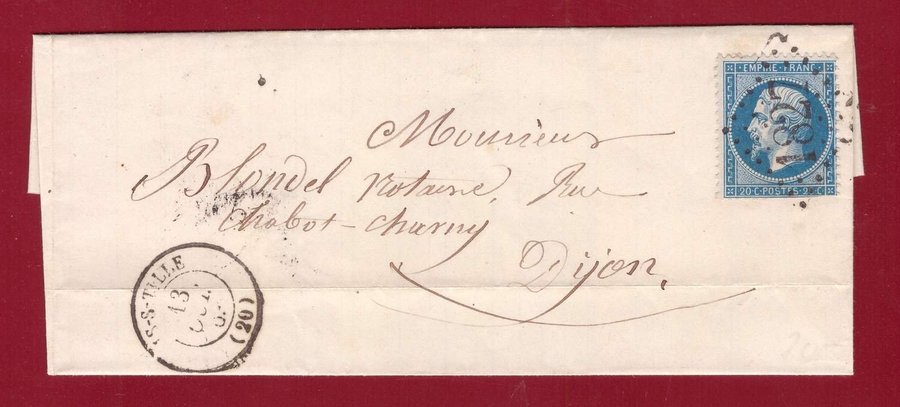 EMPIRE FRANC
20 C POSTES 20 C
Monsieur
Blondel notaire, Rue
Chabot-Charny
Dijon.
S-S-TILLE
13
(20)